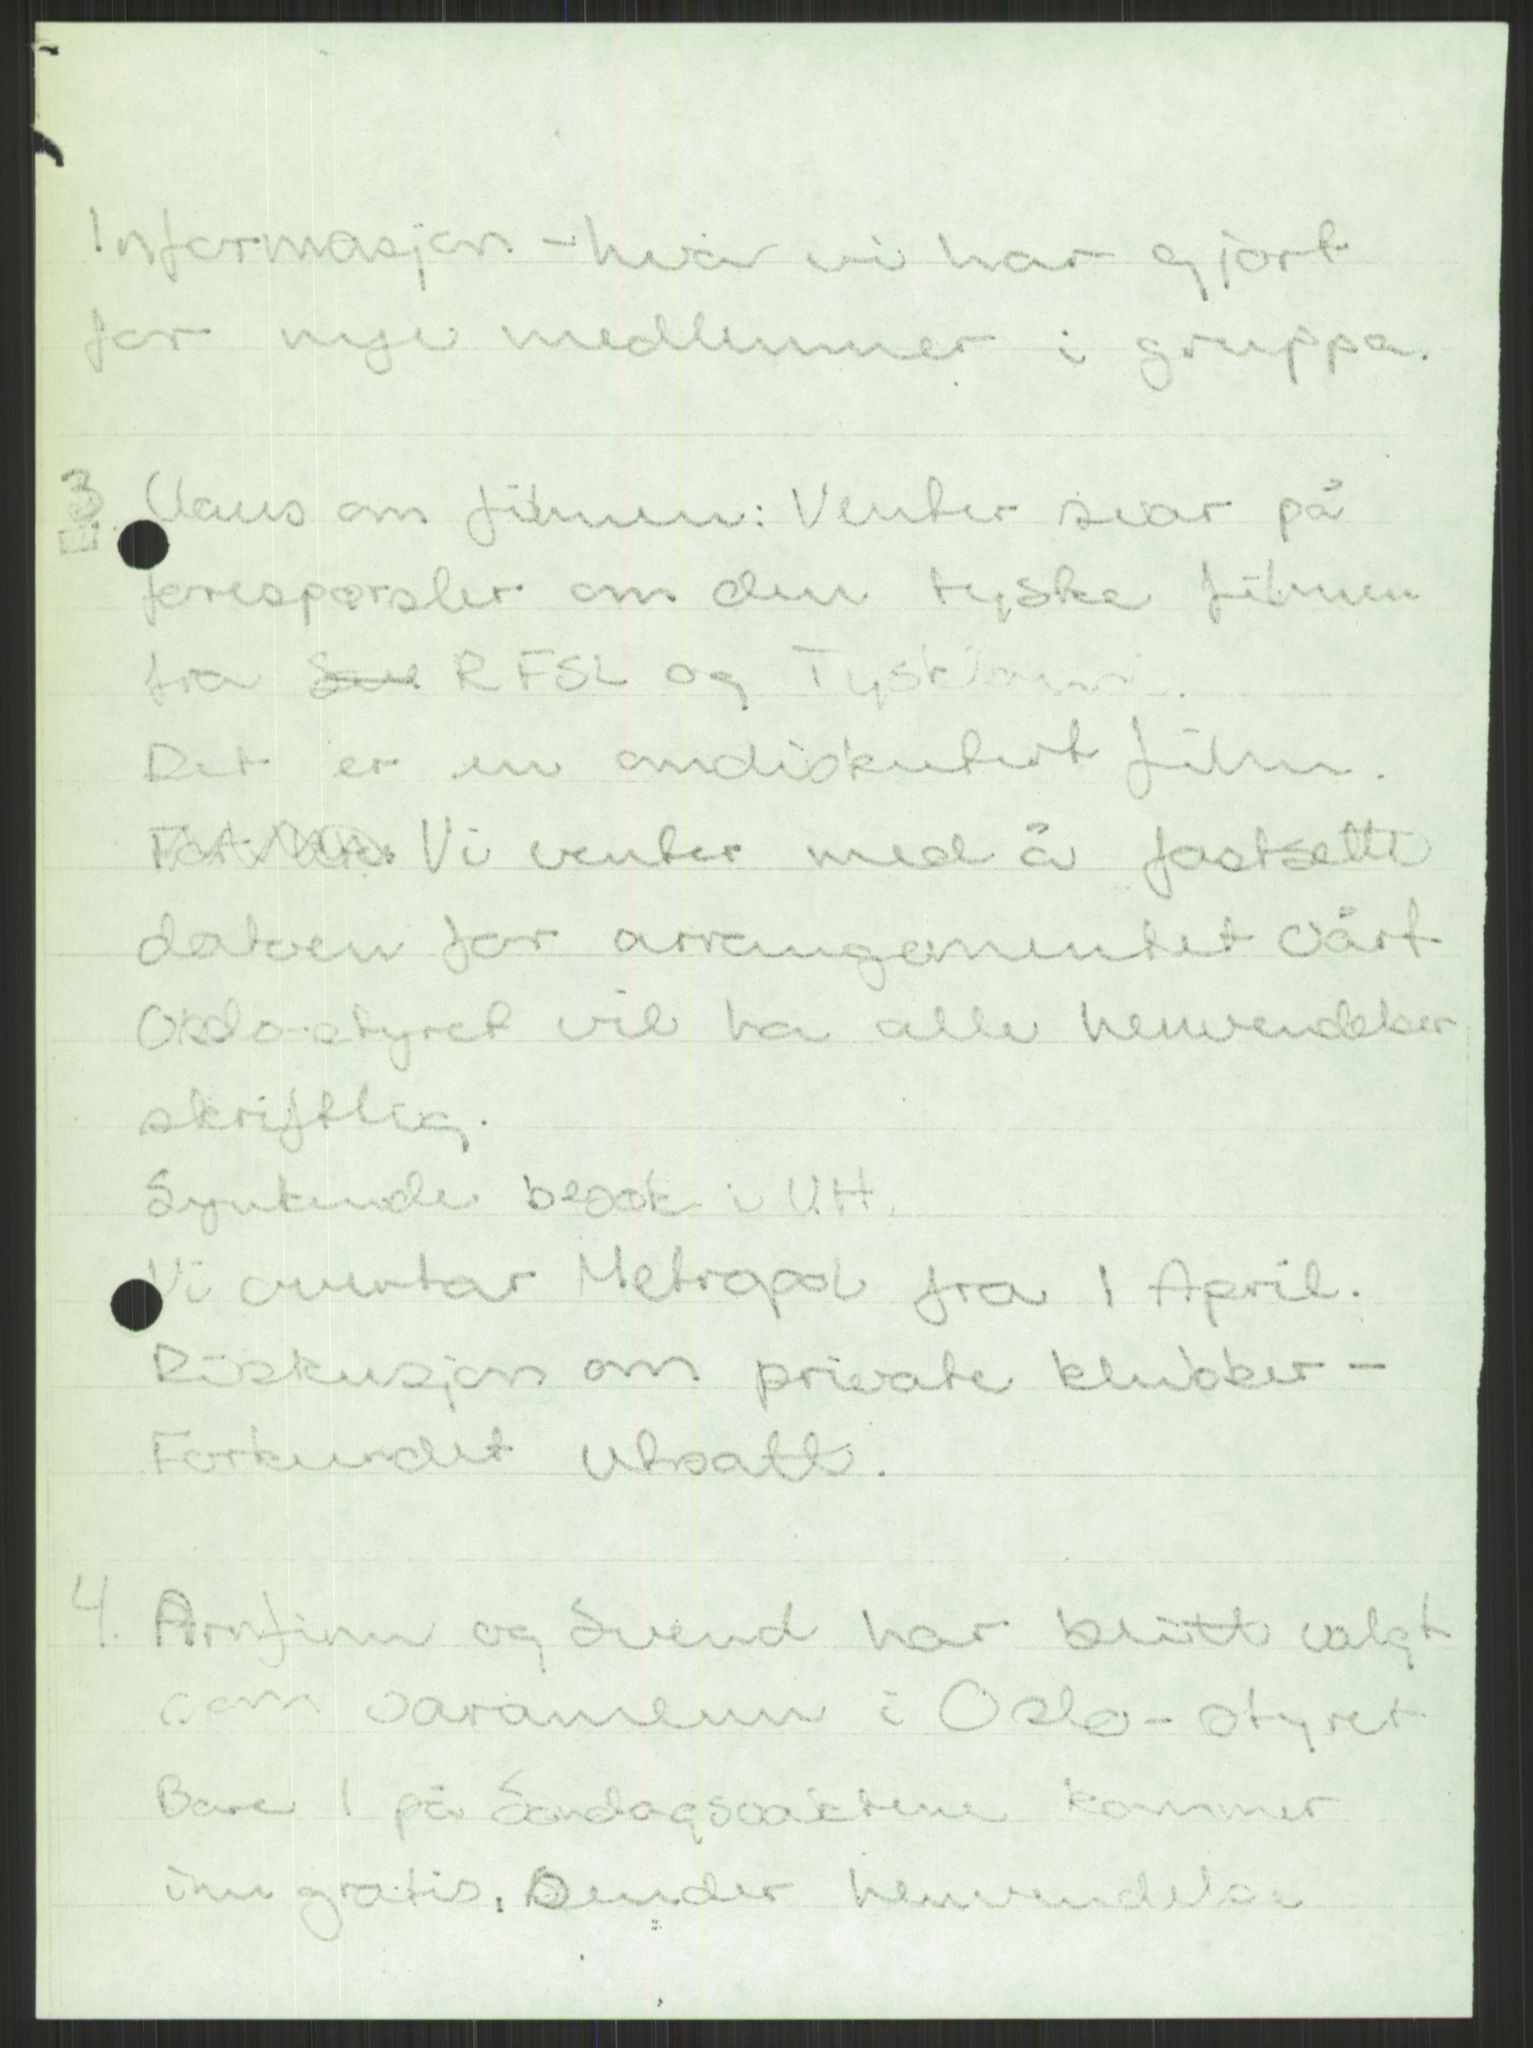 Informasjon - hva vi har gjort
for nye medlemmer i gruppa.
3. Claus om filmen: Venter svar på
forespørsler om den tyske filmen
fra RFSL og Tyskland.
Det er en omdiskutert film.
Vi venter med å fastsette
datoen for arrangementet vårt
Oslo-styret vil ha alle henvendelser
skriftlig.
Synkende besøk i UH.
Vi overtar Metropol fra 1 April.
Diskusjon om private klubber -
Forbundet utsatt.
4. Arnfinn og Svend har blitt valgt
som varamenn i Oslo-styret
Bare 1 på Søndagsvaktene kommer
inn gratis. Sender henvendelse